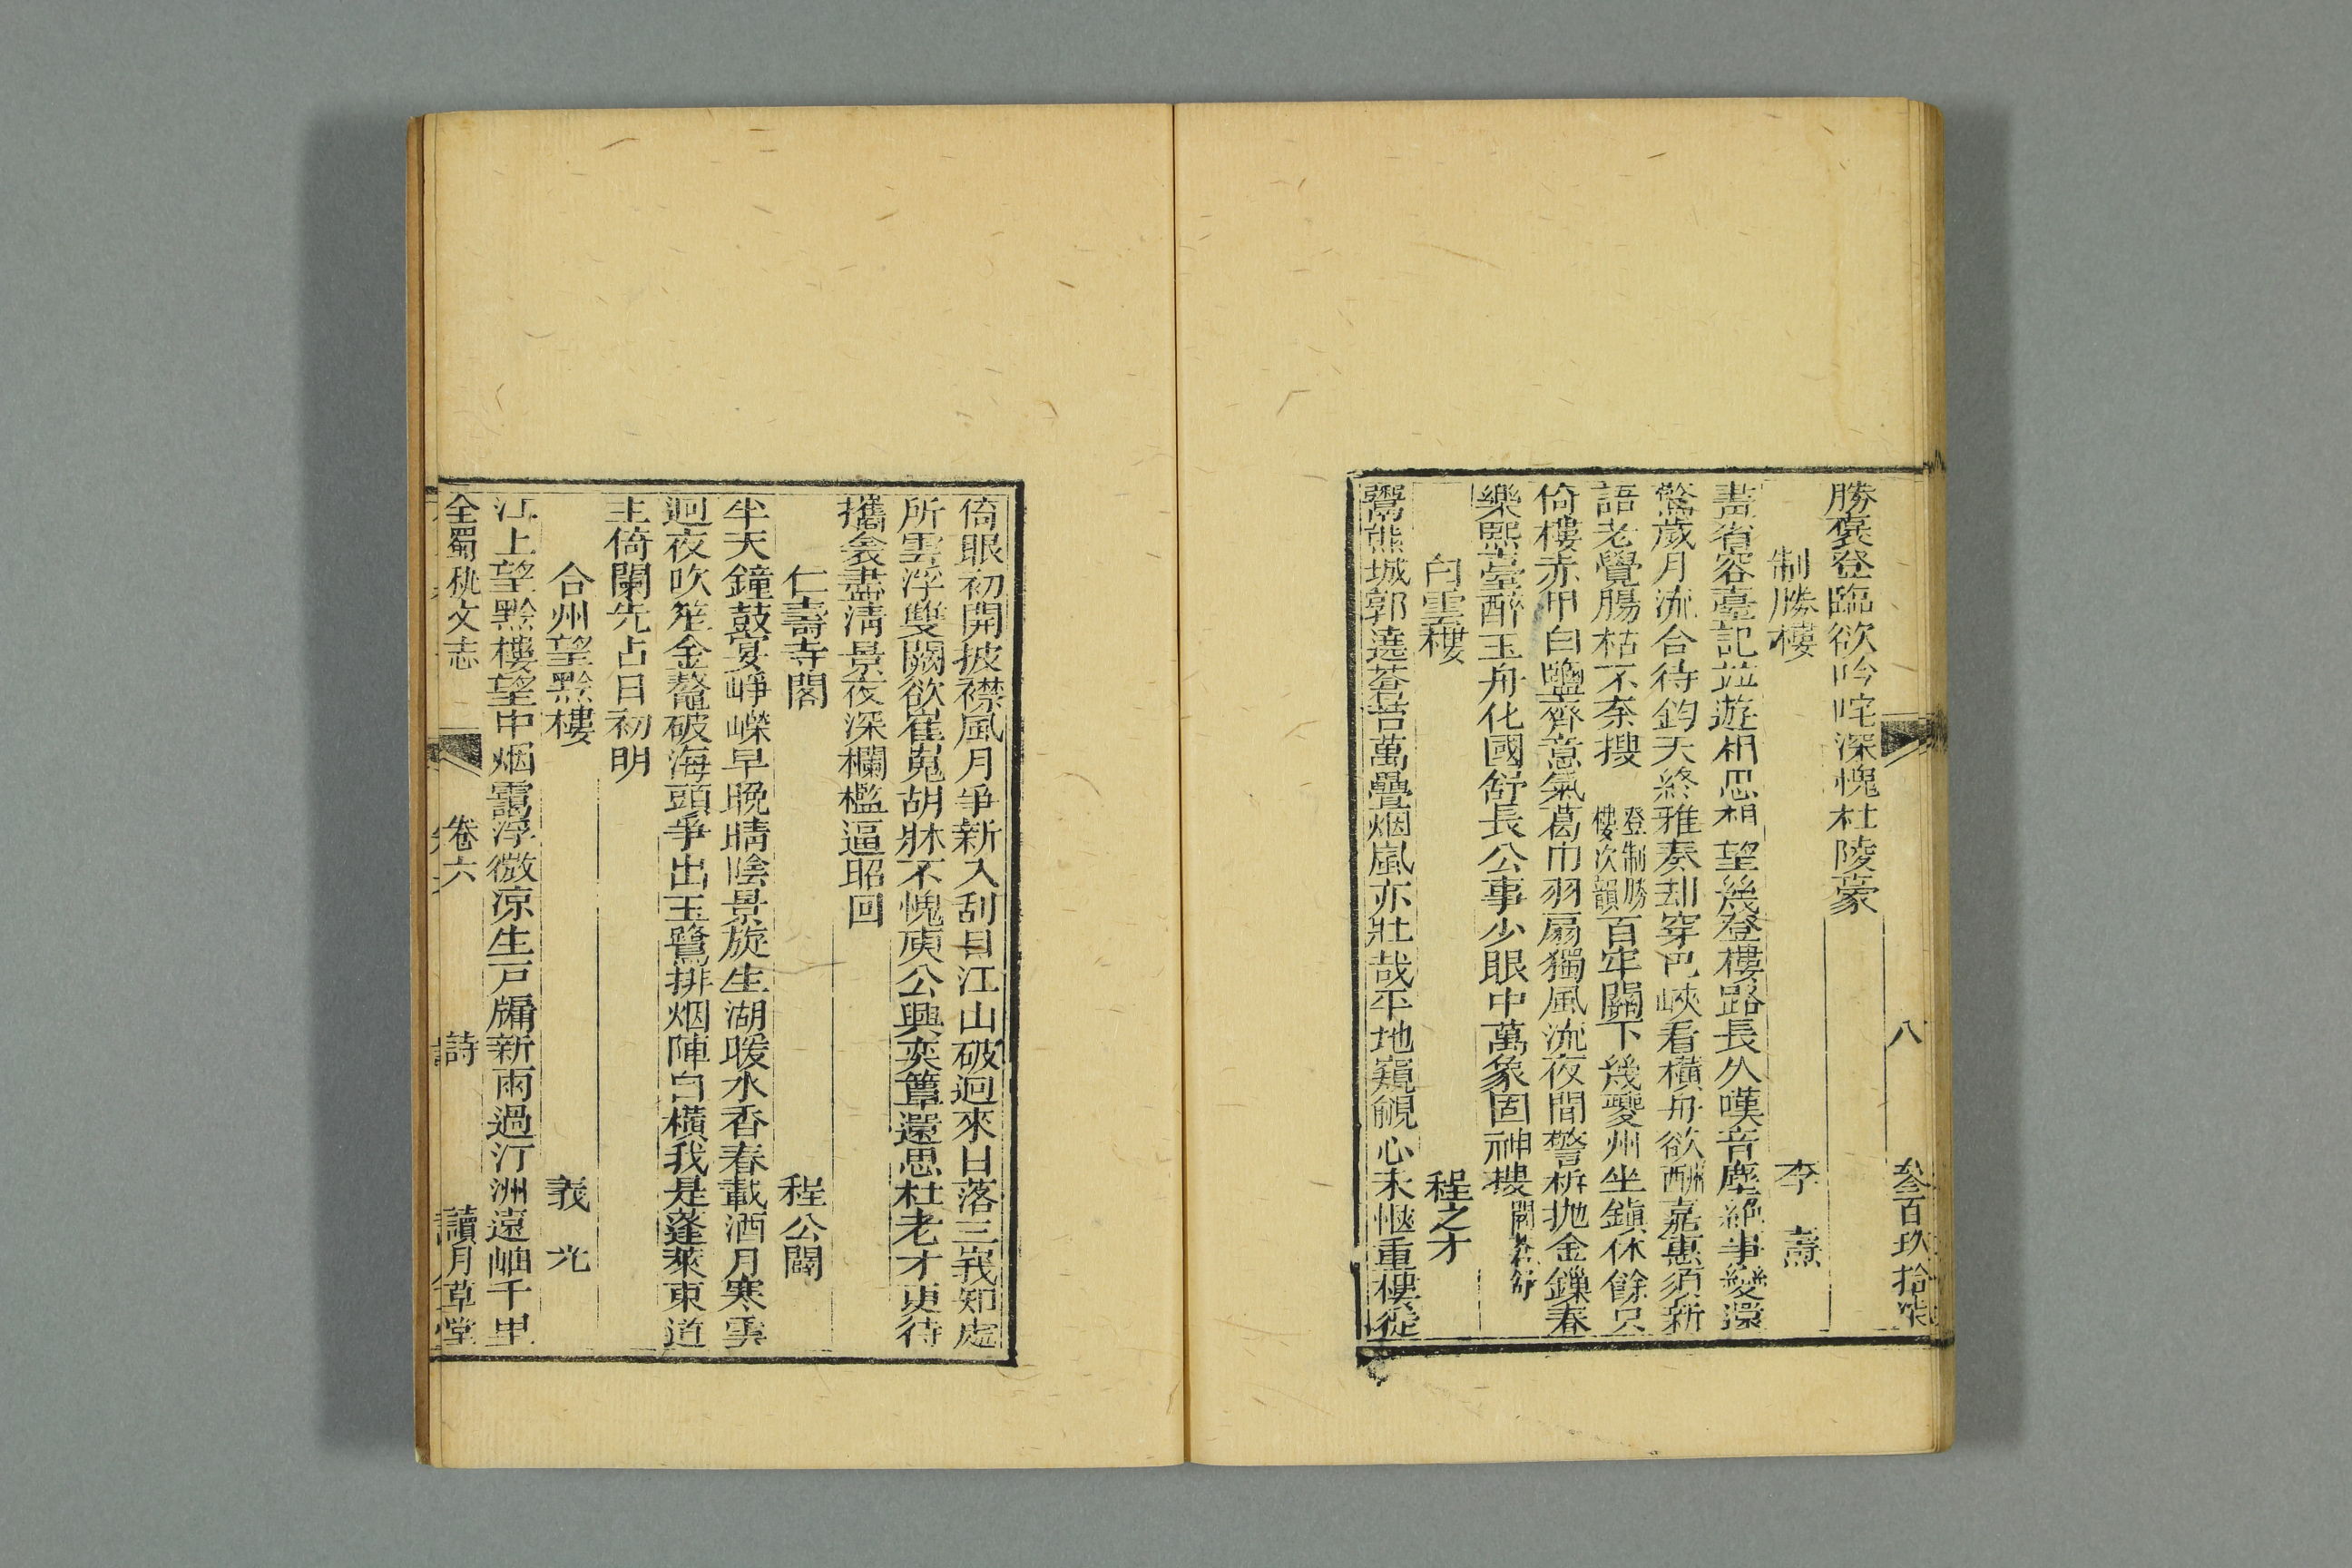 八　叁百玖拾柒
勝裒登臨欲吟咤深愧杜陵豪
制勝樓　李燾
畫省容臺記並遊相思相望幾登樓路長久嘆音塵絕事變還
驚歲月流合待鈞天終雅奏却穿巴峽看橫舟欲酬嘉惠須新
語老覺腸枯不柰搜登制勝樓次韻百牢關下幾夔州坐鎮休餘只
倚樓赤甲白鹽齊意氣葛巾羽扇獨風流夜間警柝拋金鏁春
樂熙臺醉玉舟化國舒長公事少眼中萬象固神樓
白雲樓　程之才
鬻熊城郭遶蒼苔萬疊烟嵐亦壯哉平地窺覦心未愜重樓從
倚眼初開披襟風月爭新入刮目江山破迥來日落三峩知處
所雲浮雙闕欲崔嵬胡牀不愧庾公興奕簟還思杜老才更待
攜衾盡淸景夜深欄檻逼昭回
仁壽寺閣　程公闢
半天鐘鼓宴崢嶸早晚晴陰景旋生湖暖水香春載酒月寒雲
迥夜吹笙金鼇破海頭爭出玉鷺排烟陣自橫我是蓬萊東道
主倚闌先占日初明
合州望黔樓　義光
江上望黔樓望中烟靄浮微凉生戸牖新雨過汀洲遠岫千里
全蜀秇文志　卷六　詩　讀月草堂